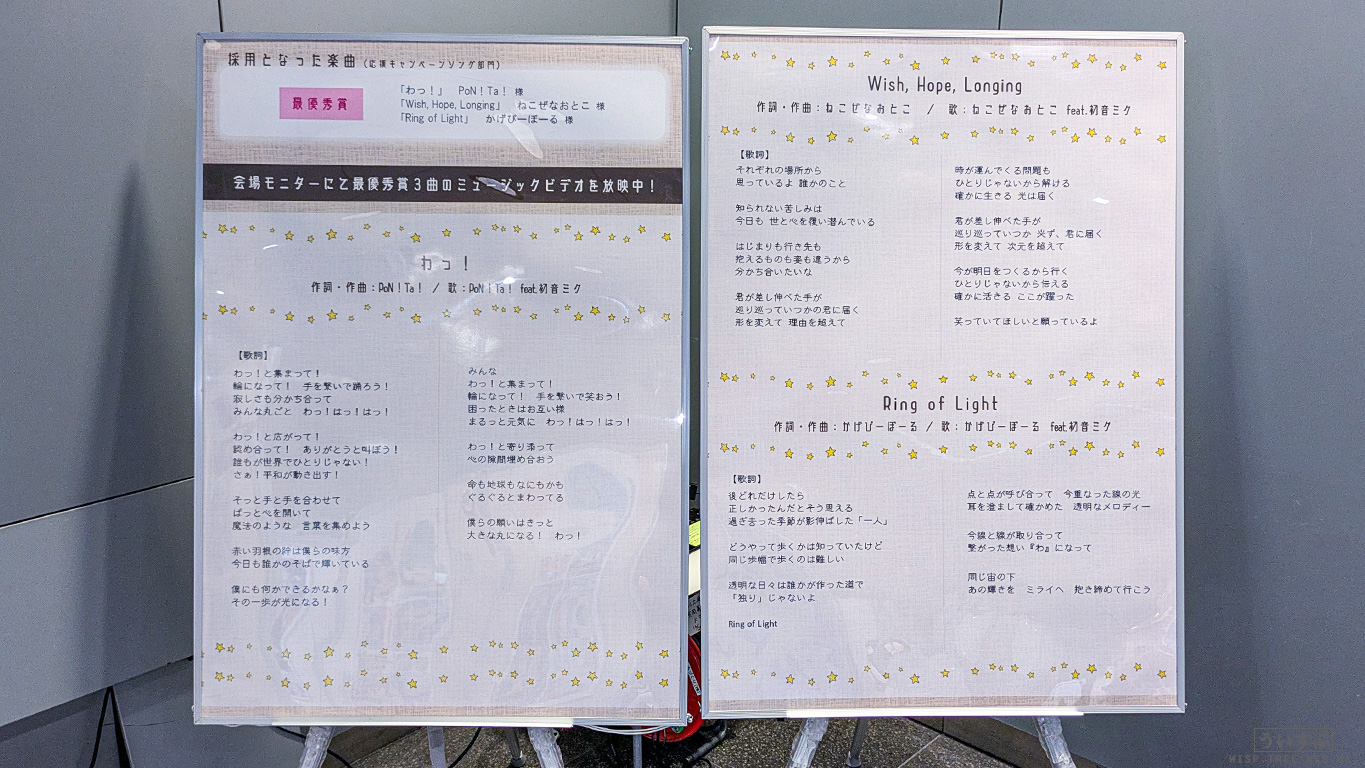 採用となった楽曲（応援キャンペーンソング部門）
最優秀賞
「わっ！」 PoN！Ta！ 様
「Wish, Hope, Longing」 ねこぜなおとこ 様
「Ring of Light」 かげぴーぼーる 様
会場モニターにて最優秀賞３曲のミュージックビデオを放映中！
わっ！
作詞・作曲：PoN！Ta！ / 歌：PoN！Ta！ feat.初音ミク
【歌詞】
わっ！と集まって！
輪になって！ 手を繋いで踊ろう！
寂しさも分かち合って
みんな丸ごと わっ！はっ！はっ！
わっ！と広がって！
認め合って！ ありがとうと叫ぼう！
誰もが世界でひとりじゃない！
さぁ！平和が動き出す！
そっと手と手を合わせて
ぱっと心を開いて
魔法のような 言葉を集めよう
赤い羽根の絆は僕らの味方
今日も誰かのそばで輝いている
僕にも何かできるかなぁ？
その一歩が光になる！
みんな
わっ！と集まって！
輪になって！ 手を繋いで笑おう！
困ったときはお互い様
まるっと元気に わっ！はっ！はっ！
わっ！と寄り添って
心の隙間埋め合おう
命も地球もなにもかも
ぐるぐるとまわってる
僕らの願いはきっと
大きな丸になる！ わっ！
Wish, Hope, Longing
作詞・作曲：ねこぜなおとこ / 歌：ねこぜなおとこ feat.初音ミク
【歌詞】
それぞれの場所から
思っているよ 誰かのこと
知られない苦しみは
今日も 世と心を覆い潜んでいる
はじまりも行き先も
抱えるものも姿も違うから
分かち合いたいな
君が差し伸べた手が
巡り巡っていつかの君に届く
形を変えて 理由を超えて
時が運んでくる問題も
ひとりじゃないから解ける
確かに生きる 光は届く
君が差し伸べた手が
巡り巡っていつか 必ず、君に届く
形を変えて 次元を超えて
今が明日をつくるから行く
ひとりじゃないから伝える
確かに活きる ここが躍った
笑っていてほしいと願っているよ
Ring of Light
作詞・作曲：かげぴーぼーる / 歌：かげぴーぼーる feat.初音ミク
【歌詞】
後どれだけしたら
正しかったんだとそう思える
過ぎ去った季節が影伸ばした「一人」
どうやって歩くかは知っていたけど
同じ歩幅で歩くのは難しい
透明な日々は誰かが作った道で
「独り」じゃないよ
Ring of Light
点と点が呼び合って 今重なった線の光
耳を澄まして確かめた 透明なメロディー
今線と線が取り合って
繋がった想い『わ』になって
同じ宙の下
あの輝きを ミライへ 抱き締めて行こう